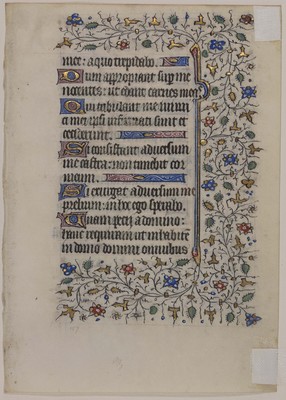 mee: a quo trepidabo.
Dum appropiant sup me
nocentes: ut edant carnes meas
Qui tribulant me inimi
ci mei ipsi infirmati sunt et
ceciderunt.
Si consistant adversum
me castra: non timebit cor
meum.
Si exurgat adversum me
prelium: in hoc ego sperabo.
Unam pecii a domino
hanc requiram ut inhabitē
in domo domini omnibus